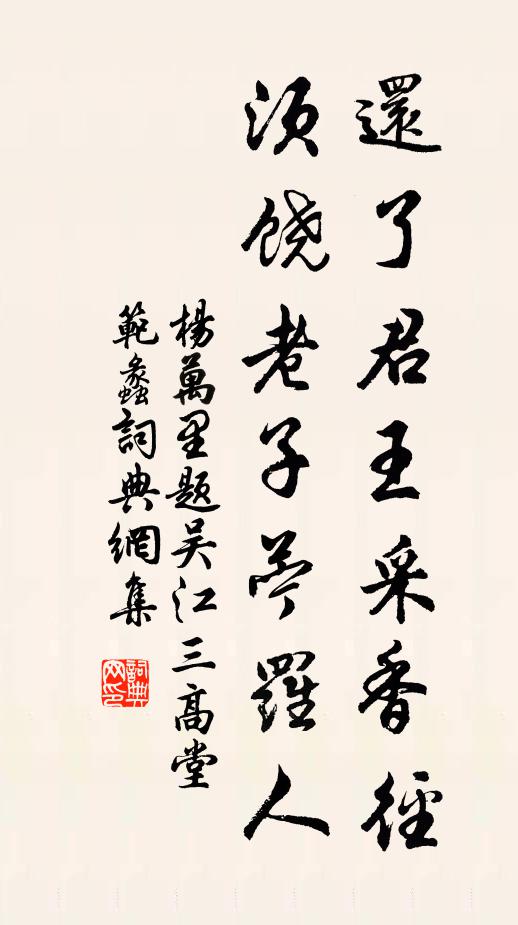 還了君王采香徑
須饒老子苧羅人
楊萬里題吴江三高堂
範蠡詞典網集
詞典网印